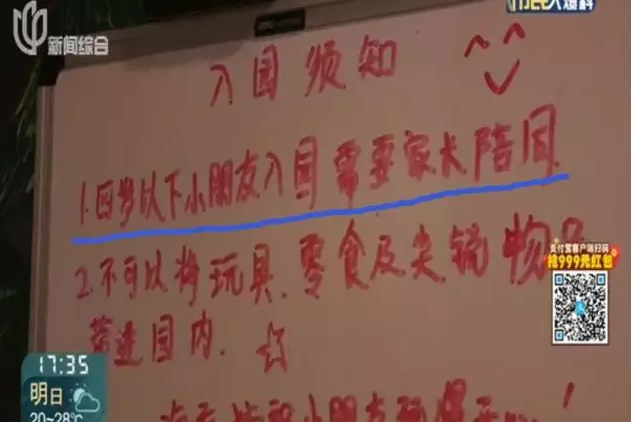 新闻综合
入园须知
1.四岁以下小朋友入园需要家长陪同.
2.不可以将玩具、零食及尖锐物品
带进园内.
支付宝客户端扫码
抢999元红包
17:35
明日
20~28℃